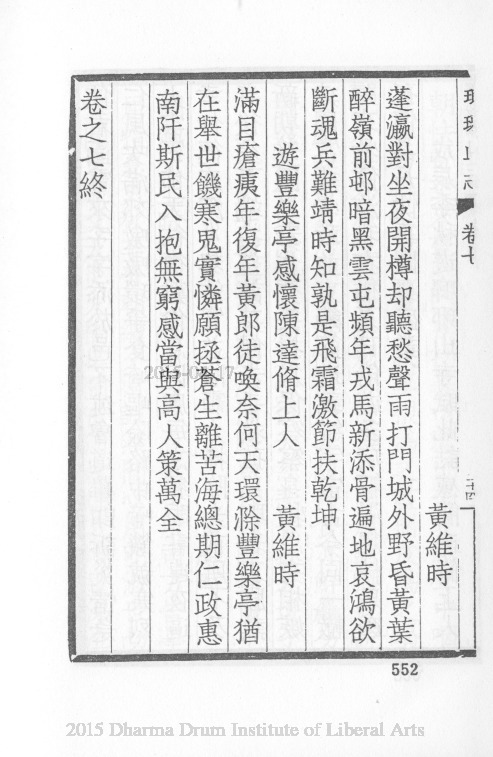 黃維時
蓬瀛對坐夜開樽却聽愁聲雨打門城外野昏黃葉
醉嶺前邨暗黑雲屯頻年戎馬新添骨遍地哀鴻欲
斷魂兵難靖時知孰是飛霜激節扶乾坤
遊豐樂亭感懷陳達脩上人 黃維時
滿目瘡痍年復年黃郎徒喚奈何天環滁豐樂亭猶
在舉世饑寒鬼實憐願拯蒼生離苦海總期仁政惠
南阡斯民入抱無窮感當與高人策萬全
卷之七終
卷七
二十四
552
2015 Dharma Drum Institute of Liberal Arts